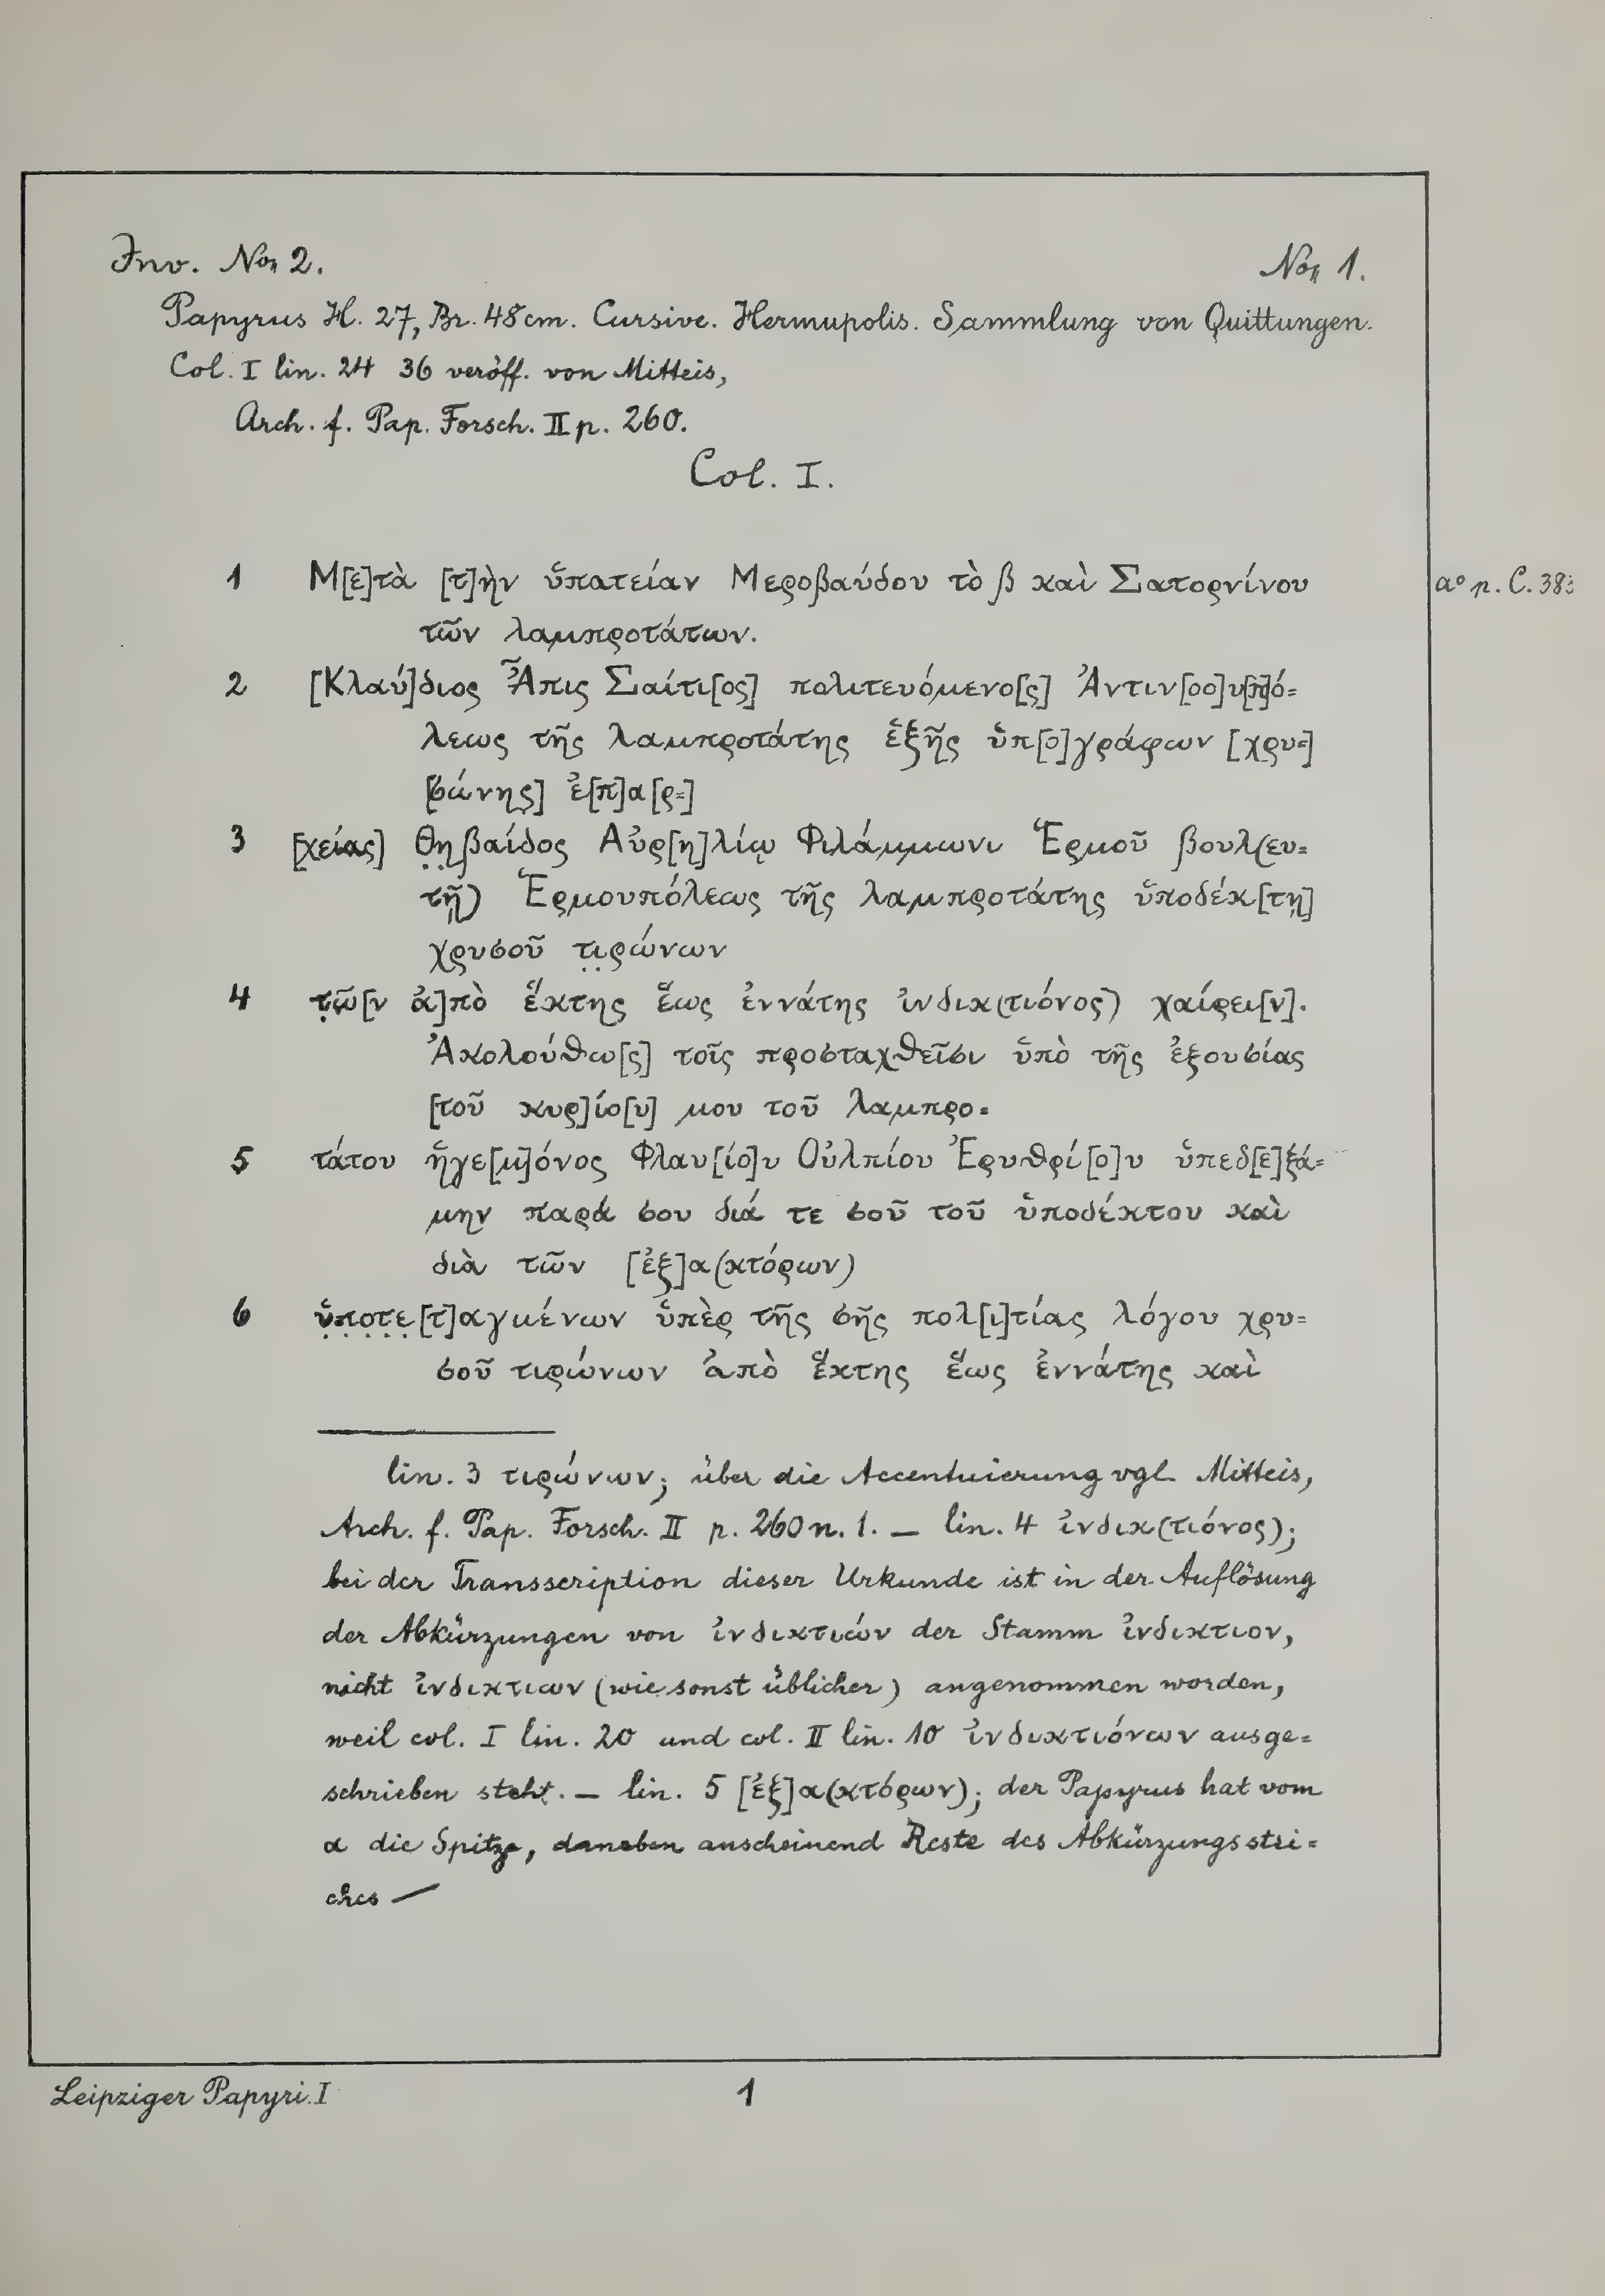 Inv. No. 2.
No. 1.
Papyrus H. 27, Br. 48 cm. Cursive. Hermupolis. Sammlung von Quittungen.
Col. I lin. 24 36 veröff. von Mitteis,
Arch. f. Pap. Forsch. II p. 260.
Col. I.
1 Μ[ε]τὰ [τ]ὴν ὑπατείαν Μεροβαύδου τὸ β καὶ Σατορνίνου
a° p. C. 383
τῶν λαμπροτάτων.
2 [Κλαύ]διος Ἆπις Σαίτι[ος] πολιτευόμενο[ς] Ἀντιν[οο]υ[π]ό=
λεως τῆς λαμπροτάτης ἑξῆς ὑπ[ο]γράφων [χρυ=]
[σώνης] ἐ[π]α[ρ=]
3 [χείας] Θ̣η̣βαίδος Αὐρ[η]λίῳ Φιλάμμωνι Ἑρμοῦ βουλ(ευ=
τῇ) Ἑρμουπόλεως τῆς λαμπροτάτης ὑποδέκ[τῃ]
χρυσοῦ τ̣ι̣ρώνων
4 τ̣ῶ[ν ἀ]πὸ ἕκτης ἕως ἐννάτης ἰνδικ(τιόνος) χαίρει[ν].
Ἀκολούθω[ς] τοῖς προσταχθεῖσι ὑπὸ τῆς ἐξουσίας
[τοῦ κυρ]ίο[υ] μου τοῦ λαμπρο=
5 τάτου ἡγε[μ]όνος Φλαυ[ίο]υ Οὐλπίου Ἐρυθρί[ο]υ ὑπεδ[ε]ξά=
μην παρά σου διά τε σοῦ τοῦ ὑποδέκτου καὶ
διὰ τῶν [ἐξ]α(κτόρων)
6 ὑ̣π̣ο̣τ̣ε̣[τ]αγμένων ὑπὲρ τῆς σῆς πολ[ι]τίας λόγου χρυ=
σοῦ τιρώνων ἀπὸ ἕκτης ἕως ἐννάτης καὶ
lin. 3 τιρώνων; über die Accentuierung vgl. Mitteis,
Arch. f. Pap. Forsch. II p. 260 n. 1. — lin. 4 ἰνδικ(τιόνος);
bei der Transscription dieser Urkunde ist in der Auflösung
der Abkürzungen von ἰνδικτιών der Stamm ἰνδικτιον,
nicht ἰνδικτιων (wie sonst üblicher) angenommen worden,
weil col. I lin. 20 und col. II lin. 10 ἰνδικτιόνων ausge=
schrieben steht. — lin. 5 [ἐξ]α(κτόρων); der Papyrus hat vom
α die Spitze, daneben anscheinend Reste des Abkürzungsstri=
ches —
Leipziger Papyri. I
1